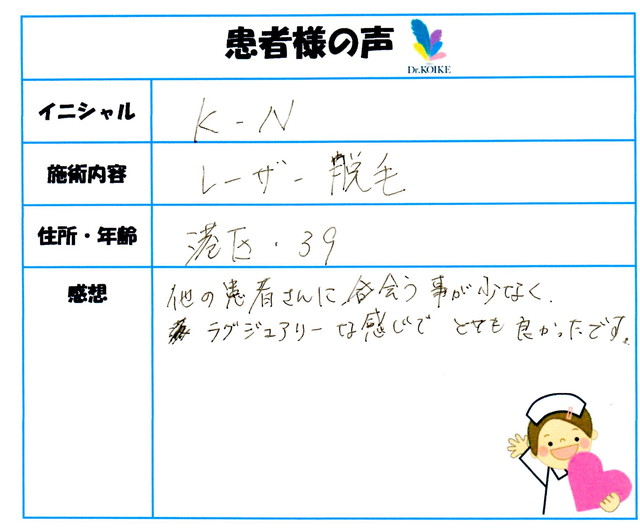 患者様の声
Dr.KOIKE
イニシャル K-N
施術内容 レーザー脱毛
住所・年齢 港区・39
感想 他の患者さんに会う事が少なく、
ラグジュアリーな感じでとても良かったです。